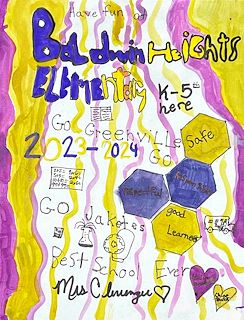 Have fun at
Baldwin Heights
ELEMENtary
K-5th
here
Go Greenville
2023-2024
Go
Safe
Respectful
good
Learners
Go Jakotes
Best School Ever